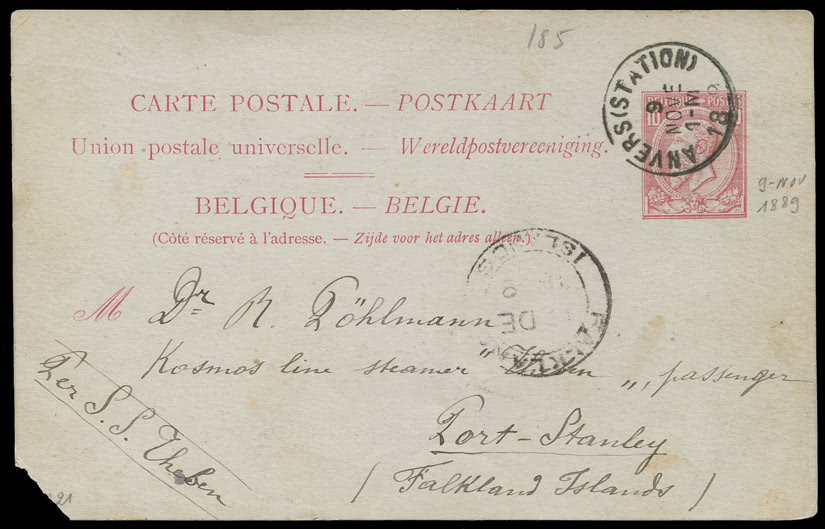 185
CARTE POSTALE. — POSTKAART
Union postale universelle. — Wereldpostvereeniging.
BELGIQUE. — BELGIE.
(Côté réservé à l'adresse. — Zijde voor het adres alleen.)
10
ANVERS (STATION)
9
NOVE
1-M
18
9-NOV
1889
FALKLAND ISLANDS
DE
M Dr R. Pöhlmann
Kosmos line steamer „ Theben „, passenger
Port-Stanley
(Falkland Islands)
Per S.S. Theben
21